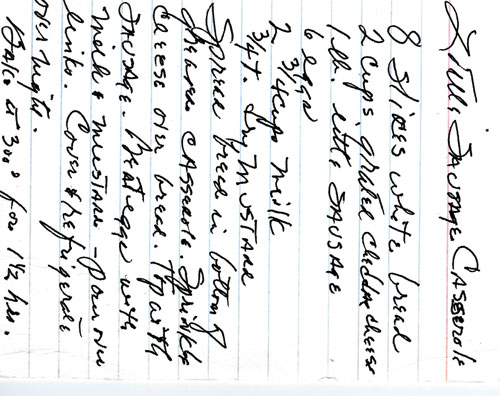 Little Sausage Casserole
8 Slices white bread
2 Cups grated Cheddar cheese
1 lb. little Sausage
6 eggs
2 3/4 cups milk
3/4 t. Dry Mustard
Spread bread in bottom of
greased casserole. Sprinkle
cheese over bread. Top with
Sausage. Beat eggs with
milk & mustard - pour over
links. Cover & refrigerate
overnight.
Bake at 300° for 1 1/2 hrs.